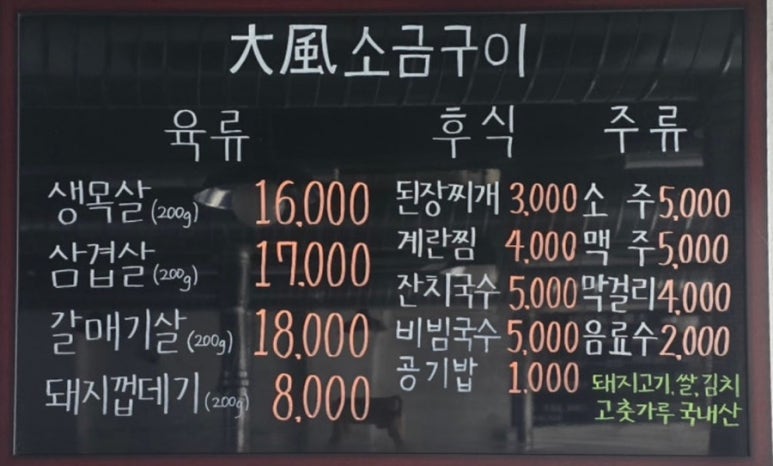 大風 소금구이
육류
생목살(200g) 16,000
삼겹살(200g) 17,000
갈매기살(200g) 18,000
돼지껍데기(200g) 8,000
후식
된장찌개 3,000
계란찜 4,000
잔치국수 5,000
비빔국수 5,000
공기밥 1,000
주류
소 주 5,000
맥 주 5,000
막걸리 4,000
음료수 2,000
돼지고기, 쌀, 김치
고춧가루 국내산